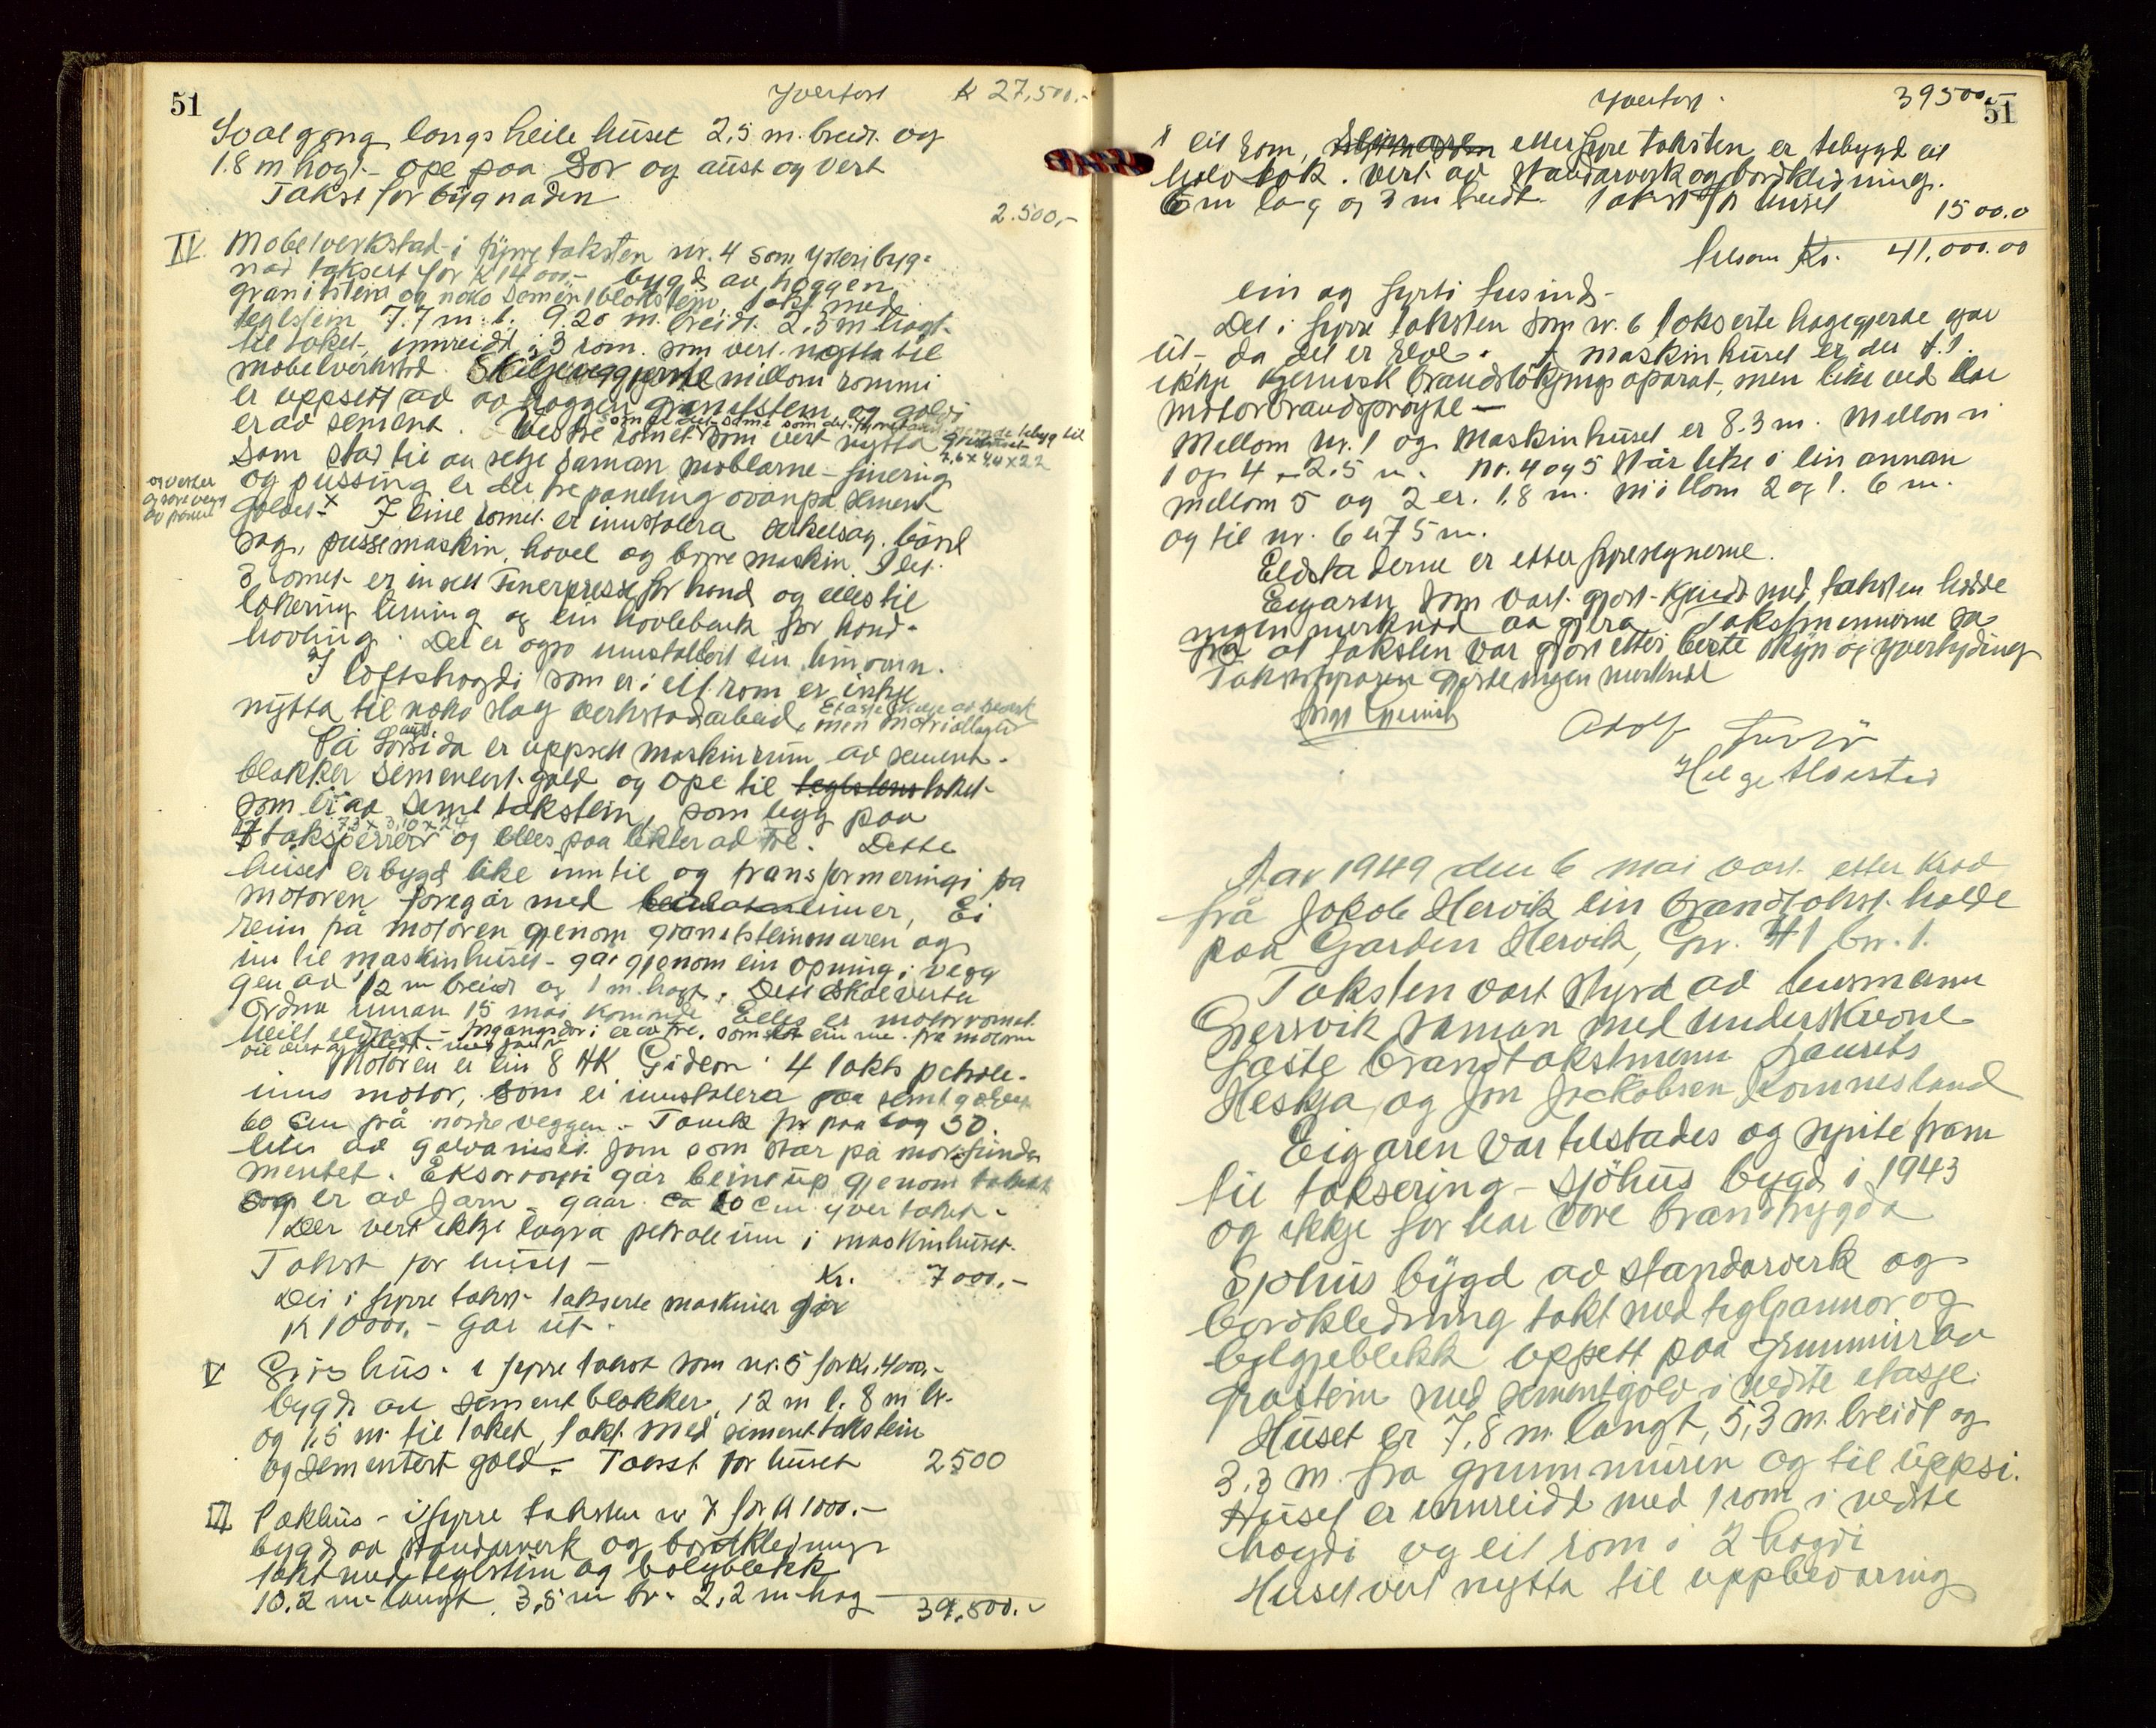 51
Yverført K 27,500.-
Svalgong langs heile huset 2,5 m. breidt og
1.8 m høgt - ope paa Sør og aust og vest
Takst for bygnaden 2.500,-
IV. Møbelverkstad i fyrre taksten nr. 4 som ysteribyg-
nad taksert for K 14000,- bygd av hoggen
granitstein og noko sementblokstein, takt med
teglstein 7.7 m. l. 9.20 m. breidt. 2,5 m høgt
til taket, innreidt i 3 rom. som vert nytta til
møbelverkstad. Skiljeveggjerne millom rommi
er uppsett av hoggen granitstein og golvi
er av sement. Vestre romet som vert nytta
som stad til aa setje saman møblarne - finering
og pussing er det tre paneling ovanpå sement
golvet. x I eine romet er innstalera sirkelsag, band
og vestre
og søre vegg
av panel
2,6 x 4,4 x 2,2
sag, pussemaskin, høvel og borremaskin. I det
3 romet er innsett Finerpresse for hand og elles til
lakering liming og ein høvlebenk for hand-
høvling. Det er ogso innstallert ein limovn.
I loftshøgdi som er i eit rom er inkje
nytta til noko slag verkstadarbeid, men matriallager
På Sørsida er uppsett maskinrum av sement-
blokker sementert golv og ope til taket
som er av sement takstein, som ligg paa
7,3 x 3,10 x 2,4
taksperrer og elles paa lekter av tre. Dette
huset er bygd like inn til og transformeringi fra
motoren foregår med reimer, Ei
reim på motoren gjenom granitsteinmuren og
inn til maskinhuset - går gjenom ein opning i vegg
gen av 12 m breidt og 1 m. høgt. Dette skal verta
ordna innan 15 mai komande. Elles er motorromet
heilt eldfast - Inngangsdør i er av tre,
Motoren er ein 8 HK Gideon 4 takts petrole-
ums motor, som er innstalera paa sement golvet
60 cm frå nordre veggen. - Tank for paa lag 50
liter av galvanisert jarn som står på motorfunda
mentet. Eksosrøyri går beint up gjenom taket
og er av Jarn gaar ca 10 cm yver taket.
Der vert ikkje lagra petroleum i maskinhuset.
Takst for huset - Kr. 7000.-
Dei i fyrre takst takserte maskiner for
K 10000,- går ut.
V Grishus i fyrre takst som nr. 5 for kr. 4000,-
bygd av sement blokker, 12 m l. 8 m br.
og 1,5 m til taket, takt med sementtakstein
og sementert golv. Takst for huset 2500
VI Pakhus - i fyrre taksten nr 7 for K 1000.-
bygd av standarverk og bordkledning
takt med teglstein og bølgeblekk
10,2 m langt 3,8 m br. 2,2 m høg
39,500.-
51
Yverført 39500.-
i eit rom, etter fyrre taksten er tebygd eit
halv tak vert av standarverk og bordkledning.
6 m lag og 3 m breidt. Takst for huset 1500.0
tilsam Kr. 41,000.00
ein og fyrti tusind-
Det i fyrre taksten som nr. 6 takserte hagegjerde gaar
ut, da det er selt. I maskinhuset er det f.t.
ikkje kjemisk brandsløkjingsaparat, men like ved har
motorbrandsprøyte -
Mellom nr. 1 og Maskinhuset er 8.3 m. Mellom nr
1 og 4 - 2.5 m. Nr. 4 og 5 står like i ein annan
mellom 5 og 2 er. 1.8 m. millom 2 og 1. 6 m.
og til nr. 6 er 75 m.
Eldstaderne er etter fyresegnerne.
Eigaren som vart gjort kjendt med taksten hadde
ingen merknad aa gjera. Takstmennerne sa
fra at taksten var gjort etter beste skjyn og yvertyding
Takststyraren gjorde ingen merknad
Adolf
Helge
Aar 1949 den 6 mai vart etter krav
frå Jakob Hervik ein brandtakst halde
paa Garden Hervik, Gnr. 41 bnr. 1.
Taksten vart styrd av lensmann
Gjersvik saman med underskrevne
faste brandtakstmenn Laurits
Heskja og Jon Jackobsen Tommesland
Eigaren var tilstades og synte fram
til taksering - sjøhus bygd i 1943
og ikkje før har vore brandtrygda
Sjøhus bygd av standarverk og
bordkledning takt med teglpannor og
bølgjeblekk oppsett paa grunnmur av
gråstein med sementgolv i nedste etasje.
Huset er 7,8 m. langt, 5,3 m. breidt og
3,3 m. fra grunnmuren og til uppsi.
Huset er innreidd med 1 rom i nedste
høgdi og eit rom i 2 høgdi
Huset vert nytta til uppbevaring